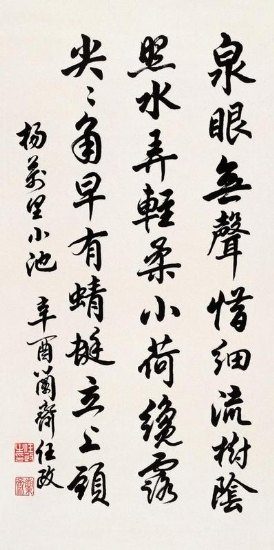 泉眼無聲惜細流樹陰
照水弄輕柔小荷纔露
尖〻角早有蜻蜓立上頭
杨萬里小池 辛酉蘭齋任政